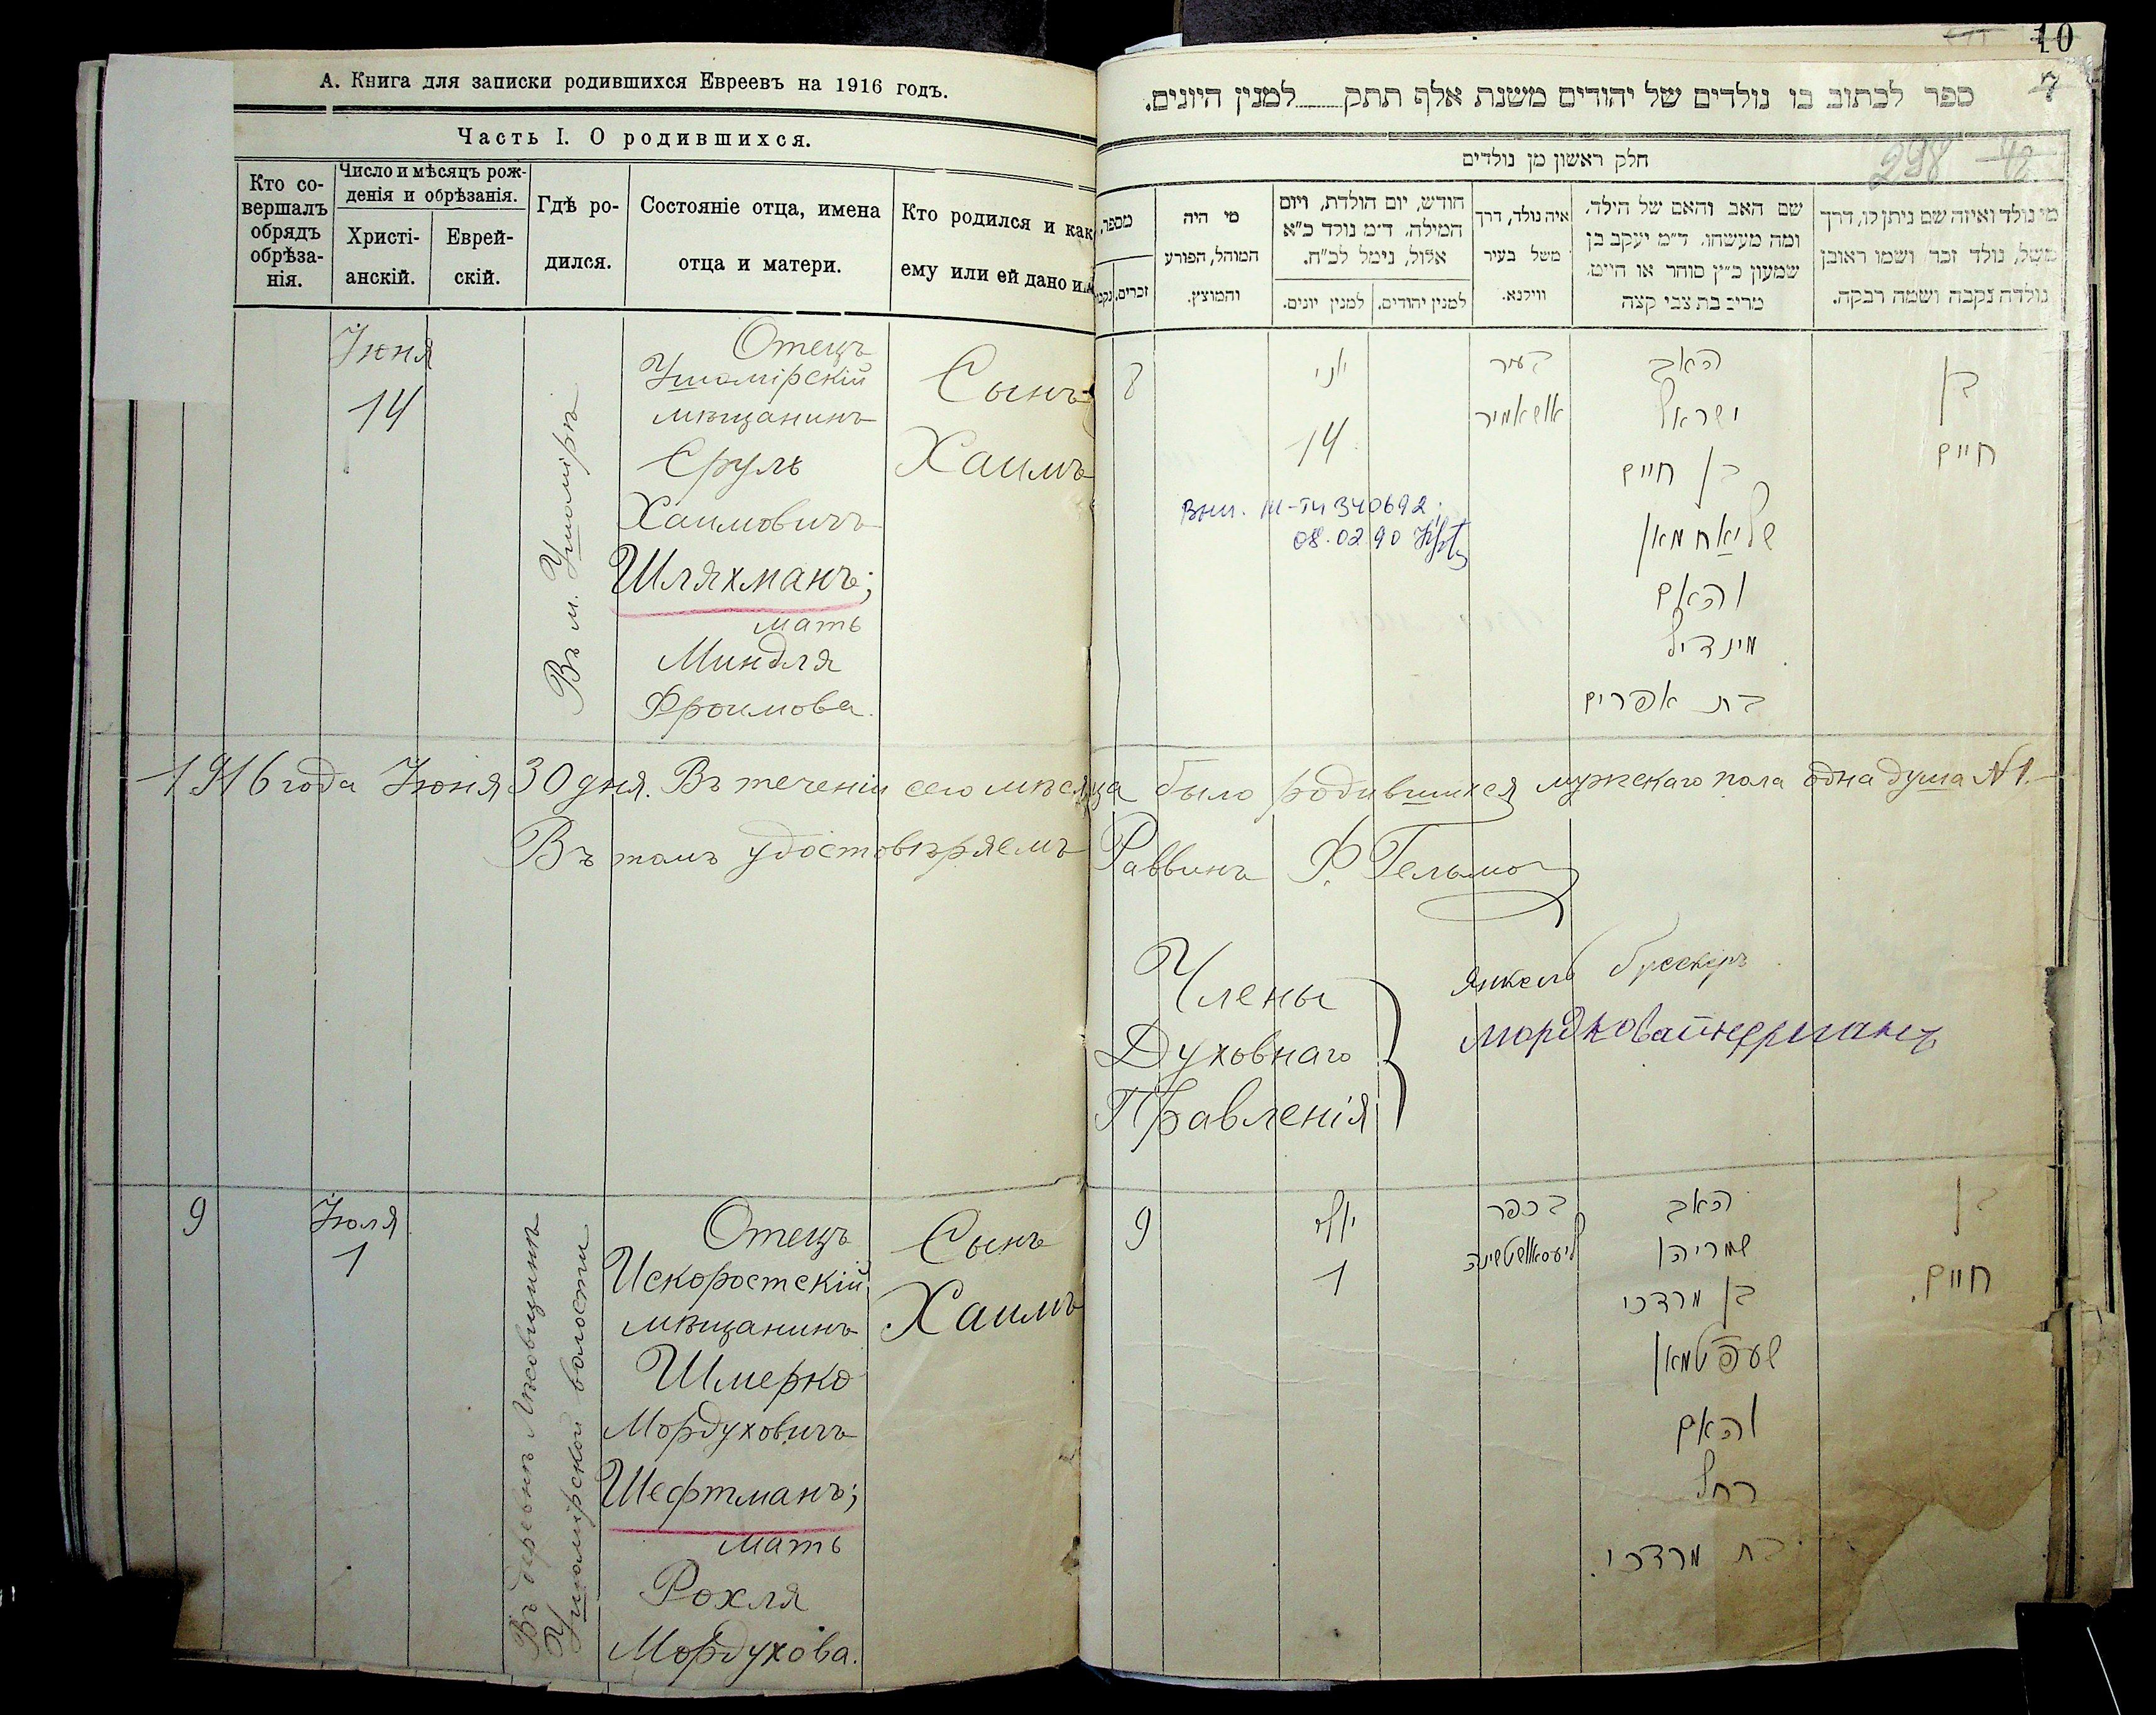 А. Книга для записки родившихся Евреевъ на 1916 годъ.
Часть I. О родившихся.
Кто со-
вершалъ
обрядъ
обрѣза-
нія.
Число и мѣсяцъ рож-
денія и обрѣзанія.
Христі-
анскій.
Еврей-
скій.
Гдѣ ро-
дился.
Состояніе отца, имена
отца и матери.
Кто родился и как
ему или ей дано
Іюня
14
Въ м. Ушомірѣ
Отецъ
Ушомірскій
мѣщанинъ
Сруль
Хаимовичъ
Шляхманъ;
мать
Миндля
Фроимова.
Сынъ
Хаимъ
1916 года Іюня 30 дня. Въ теченіи сего мѣсяца было родившихся мужескаго пола одна душа №1.
Въ томъ удостовѣряемъ Раввинъ Ф. Гельмо
Члены
Духовнаго
Правленія
Янкель
9
Іюля
1
Въ деревнѣ
Ушомірской волости
Отецъ
Искоростскій
мѣщанинъ
Шмерко
Мордуховичъ
Шефтманъ;
мать
Рохля
Мордухова.
Сынъ
Хаимъ
10
7
ספר לכתוב בו נולדים של יהודים משנת אלף תתק למנין היונים.
298
חלק ראשון מן נולדים
מי נולד ואיזה שם ניתן לו, דרך
משל, נולד זכר ושמו ראובן
נולדה נקבה ושמה רבקה.
שם האב והאם של הילד,
ומה מעשהו. ד״מ יעקב בן
שמעון כ״ץ סוחר או חייט.
מרים בת צבי קצה
איה נולד, דרך
משל בעיר
ווילנא.
חודש, יום הולדת, ויום
המילה. ד״מ נולד כ״א
אלול, נימל לכ״ח.
למנין יהודים.
למנין יונים.
מי היה
המוהל, הפורע
והמוצץ.
מספר
זכרים.
8
יוני
14
בעיר
אושאמיר
האב
ישראל
בן חיים
שליאחמאן
והאם
מינדיל
בת אפרים
בן
חיים
340692
08.02.90
9
יולי
1
בכפר
האב
שמריהו
בן מרדכי
שעפטמאן
והאם
רחל
בת מרדכי.
בן
חיים.